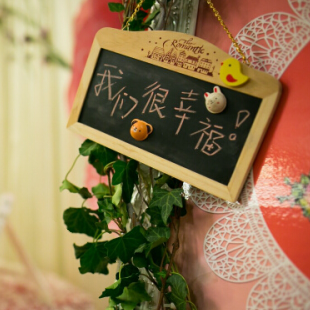 Romantic
我们很幸福!